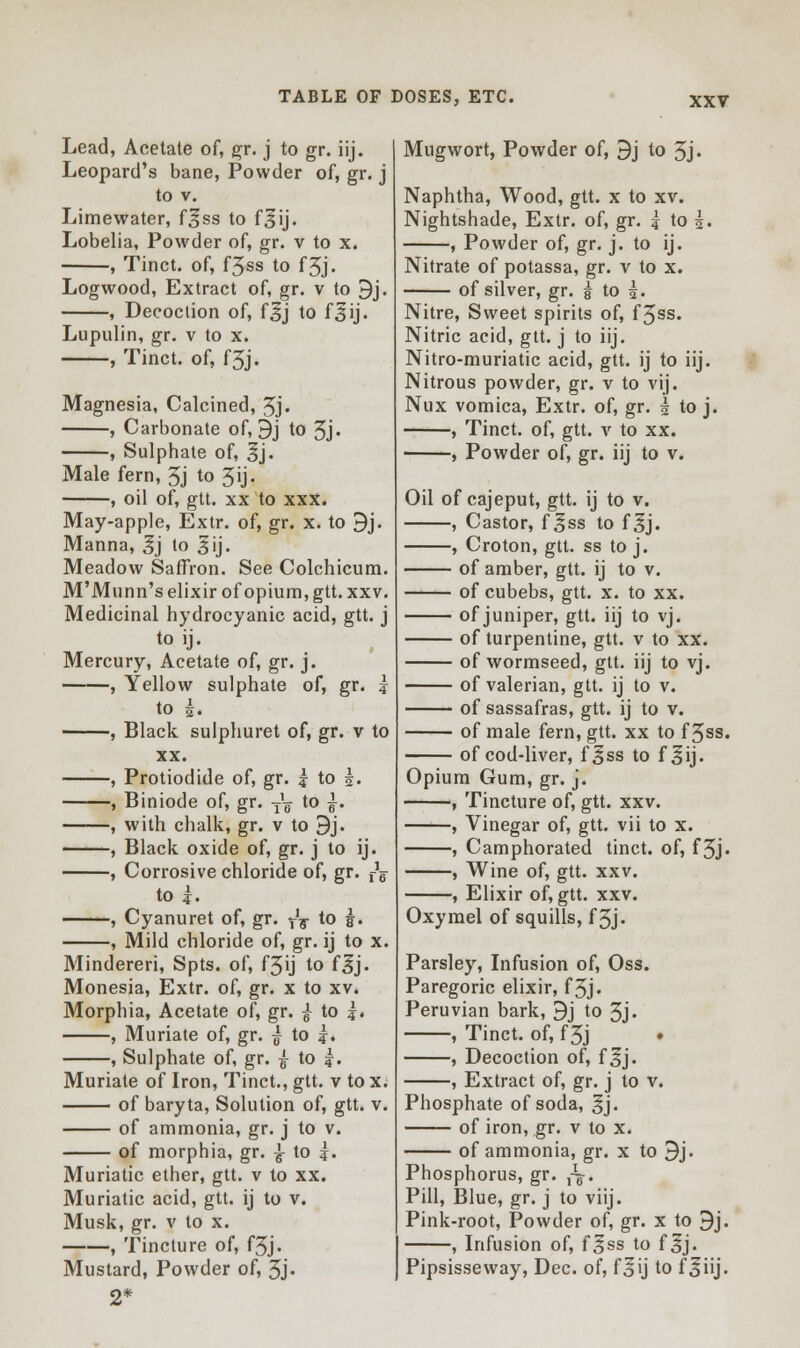 TABLE OF DOSES, ETC.
xxv
Lead, Acetate of, gr. j to gr. iij.
Leopard's bane, Powder of, gr. j
to v.
Limewater, f℥ss to f℥ij.
Lobelia, Powder of, gr. v to x.
——, Tinct. of, fʒss to fʒj.
Logwood, Extract of, gr. v to ℈j.
——, Decoction of, f℥j to f℥ij.
Lupulin, gr. v to x.
——, Tinct. of, fʒj.
Magnesia, Calcined, ʒj.
——, Carbonate of, ℈j to ʒj.
——, Sulphate of, ℥j.
Male fern, ʒj to ʒij.
——, oil of, gtt. xx to xxx.
May-apple, Extr. of, gr. x. to ℈j.
Manna, ℥j to ℥ij.
Meadow Saffron. See Colchicum.
M'Munn's elixir of opium, gtt. xxv.
Medicinal hydrocyanic acid, gtt. j
to ij.
Mercury, Acetate of, gr. j.
——, Yellow sulphate of, gr. ¼
to ½.
——, Black sulphuret of, gr. v to
xx.
——, Protiodide of, gr. ¼ to ½.
——, Biniode of, gr. 1/16 to ⅛.
——, with chalk, gr. v to ℈j.
——, Black oxide of, gr. j to ij.
——, Corrosive chloride of, gr. 1/16
to ¼.
——, Cyanuret of, gr. 1/16 to ⅛.
——, Mild chloride of, gr. ij to x.
Mindereri, Spts. of, fʒij to f℥j.
Monesia, Extr. of, gr. x to xv.
Morphia, Acetate of, gr. ⅛ to ¼.
——, Muriate of, gr. ⅛ to ¼.
——, Sulphate of, gr. ⅛ to ¼.
Muriate of Iron, Tinct., gtt. v to x.
—— of baryta, Solution of, gtt. v.
—— of ammonia, gr. j to v.
—— of morphia, gr. ⅛ to ¼.
Muriatic ether, gtt. v to xx.
Muriatic acid, gtt. ij to v.
Musk, gr. v to x.
——, Tincture of, fʒj.
Mustard, Powder of, ʒj.
2*
Mugwort, Powder of, ℈j to ʒj.
Naphtha, Wood, gtt. x to xv.
Nightshade, Extr. of, gr. ¼ to ½.
——, Powder of, gr. j. to ij.
Nitrate of potassa, gr. v to x.
—— of silver, gr. ⅛ to ½.
Nitre, Sweet spirits of, fʒss.
Nitric acid, gtt. j to iij.
Nitro-muriatic acid, gtt. ij to iij.
Nitrous powder, gr. v to vij.
Nux vomica, Extr. of, gr. ½ to j.
——, Tinct. of, gtt. v to xx.
——, Powder of, gr. iij to v.
Oil of cajeput, gtt. ij to v.
——, Castor, f℥ss to f℥j.
——, Croton, gtt. ss to j.
—— of amber, gtt. ij to v.
—— of cubebs, gtt. x. to xx.
—— of juniper, gtt. iij to vj.
—— of turpentine, gtt. v to xx.
—— of wormseed, gtt. iij to vj.
—— of valerian, gtt. ij to v.
—— of sassafras, gtt. ij to v.
—— of male fern, gtt. xx to fʒss.
—— of cod-liver, f℥ss to f℥ij.
Opium Gum, gr. j.
——, Tincture of, gtt. xxv.
——, Vinegar of, gtt. vii to x.
——, Camphorated tinct. of, fʒj.
——, Wine of, gtt. xxv.
——, Elixir of, gtt. xxv.
Oxymel of squills, fʒj.
Parsley, Infusion of, Oss.
Paregoric elixir, fʒj.
Peruvian bark, ℈j to ʒj.
——, Tinct. of, fʒj
——, Decoction of, f℥j.
——, Extract of, gr. j to v.
Phosphate of soda, ℥j.
—— of iron, gr. v to x.
—— of ammonia, gr. x to ℈j.
Phosphorus, gr. 1/16.
Pill, Blue, gr. j to viij.
Pink-root, Powder of, gr. x to ℈j.
——, Infusion of, f℥ss to f℥j.
Pipsisseway, Dec. of, f℥ij to f℥iij.